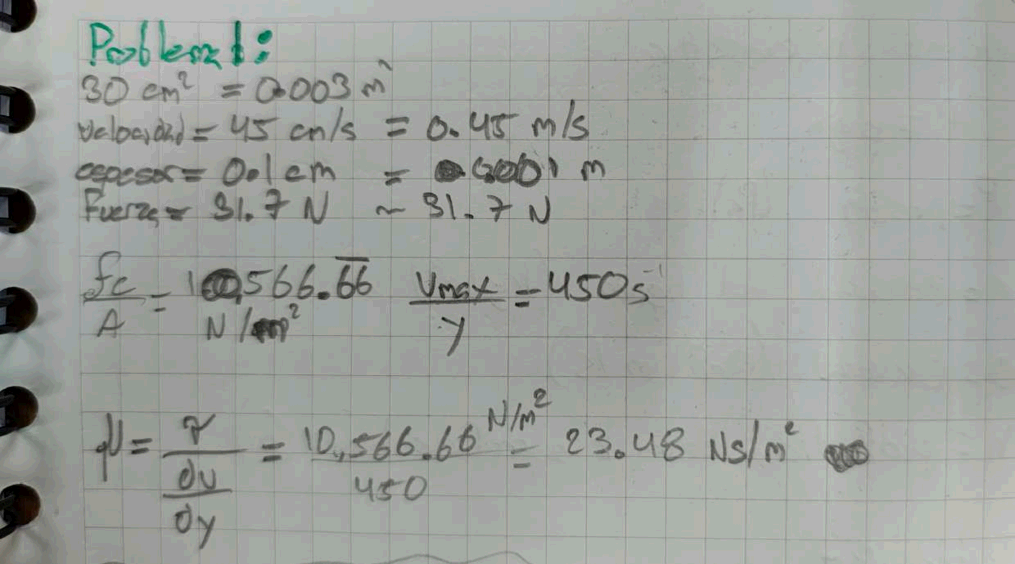 Problema 1:
30 cm² = 0.003 m²
velocidad = 45 cm/s = 0.45 m/s
espesor = 0.1 cm = 0.001 m
Fuerza = 31.7 N ~ 31.7 N
fc/A = 10,566.6̅6̅ N/m² Vmax/y = 450 s⁻¹
μ = τ/(du/dy) = 10,566.66 N/m²/450 = 23.48 Ns/m²